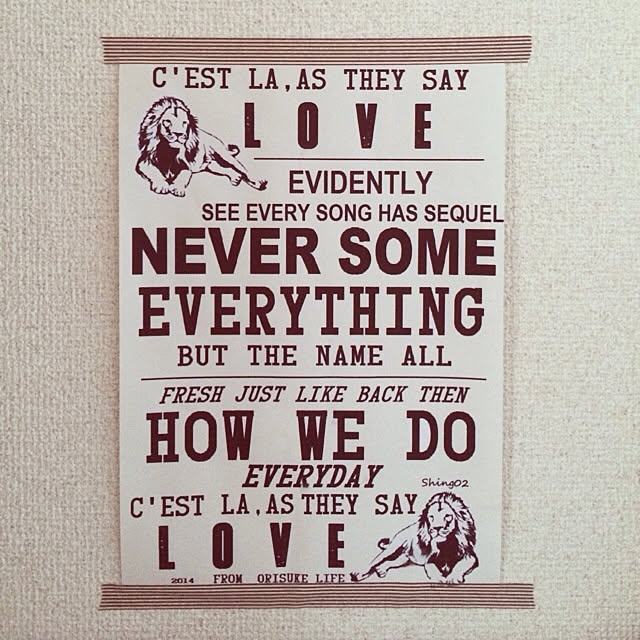 C'EST LA, AS THEY SAY
LOVE
EVIDENTLY
SEE EVERY SONG HAS SEQUEL
NEVER SOME
EVERYTHING
BUT THE NAME ALL
FRESH JUST LIKE BACK THEN
HOW WE DO
EVERYDAY
Shing02
C'EST LA, AS THEY SAY
LOVE
2014 FROM ORISUKE LIFE